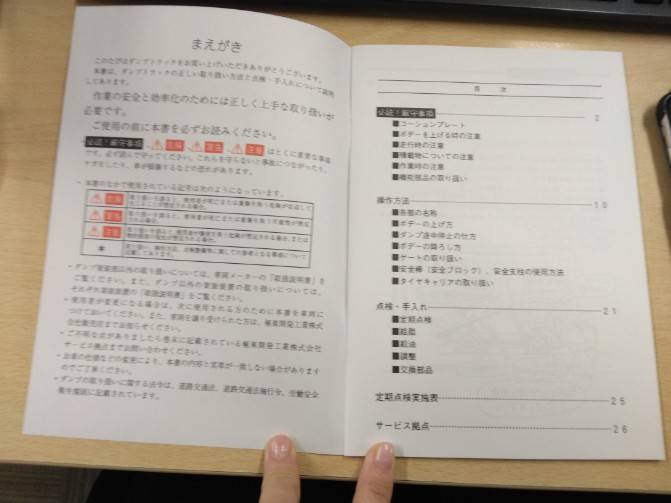 まえがき
このたびはダンプトラックをお買い上げいただきありがとうございます。
本書は、ダンプトラックの正しい取り扱い方法と点検・手入れについて説明
してあります。
作業の安全と効率化のためには正しく上手な取り扱いが
必要です。
ご使用の前に本書を必ずお読みください。
必読!厳守事項、危険、警告、注意はとくに重要な事項
です。必ず読んで守ってください。これらを守らないと事故につながったり、
ケガをしたり、車が損傷するなどの恐れがあります。
・本書のなかで使用されている記号は次のようになっています。
危険
警告
注意
＊
・ダンプ架装部以外の取り扱いについては、車両メーカーの「取扱説明書」を
ご覧ください。また、ダンプ以外の架装装置の取り扱いについては、
それぞれ架装装置の「取扱説明書」をご覧ください。
・使用者が変更になる場合は、次に使用される方のために本書を車両に
つけておいてください。また、車両を譲り受けられた方は、極東開発工業株式
会社販売店までお知らせください。
・ご不明な点がありましたら巻末に記載されている極東開発工業株式会社
サービス拠点までお問い合わせください。
・お車の仕様などの変更により、本書の内容と実車が一致しない場合があります
のでご了承ください。
・ダンプの取り扱いに関する法令は、道路交通法、道路交通法施行令、労働安全
衛生規則に記載されています。
目 次
必読!厳守事項 2
■コーションプレート
■ボデーを上げる時の注意
■走行時の注意
■積載物についての注意
■作業時の注意
■機能部品の取り扱い
操作方法 10
■各部の名称
■ボデーの上げ方
■ダンプ途中停止の仕方
■ボデーの降ろし方
■ゲートの取り扱い
■安全棒（安全ブロック）、安全支柱の使用方法
■タイヤキャリアの取り扱い
点検・手入れ 21
■定期点検
■給脂
■給油
■調整
■交換部品
定期点検実施表 25
サービス拠点 26